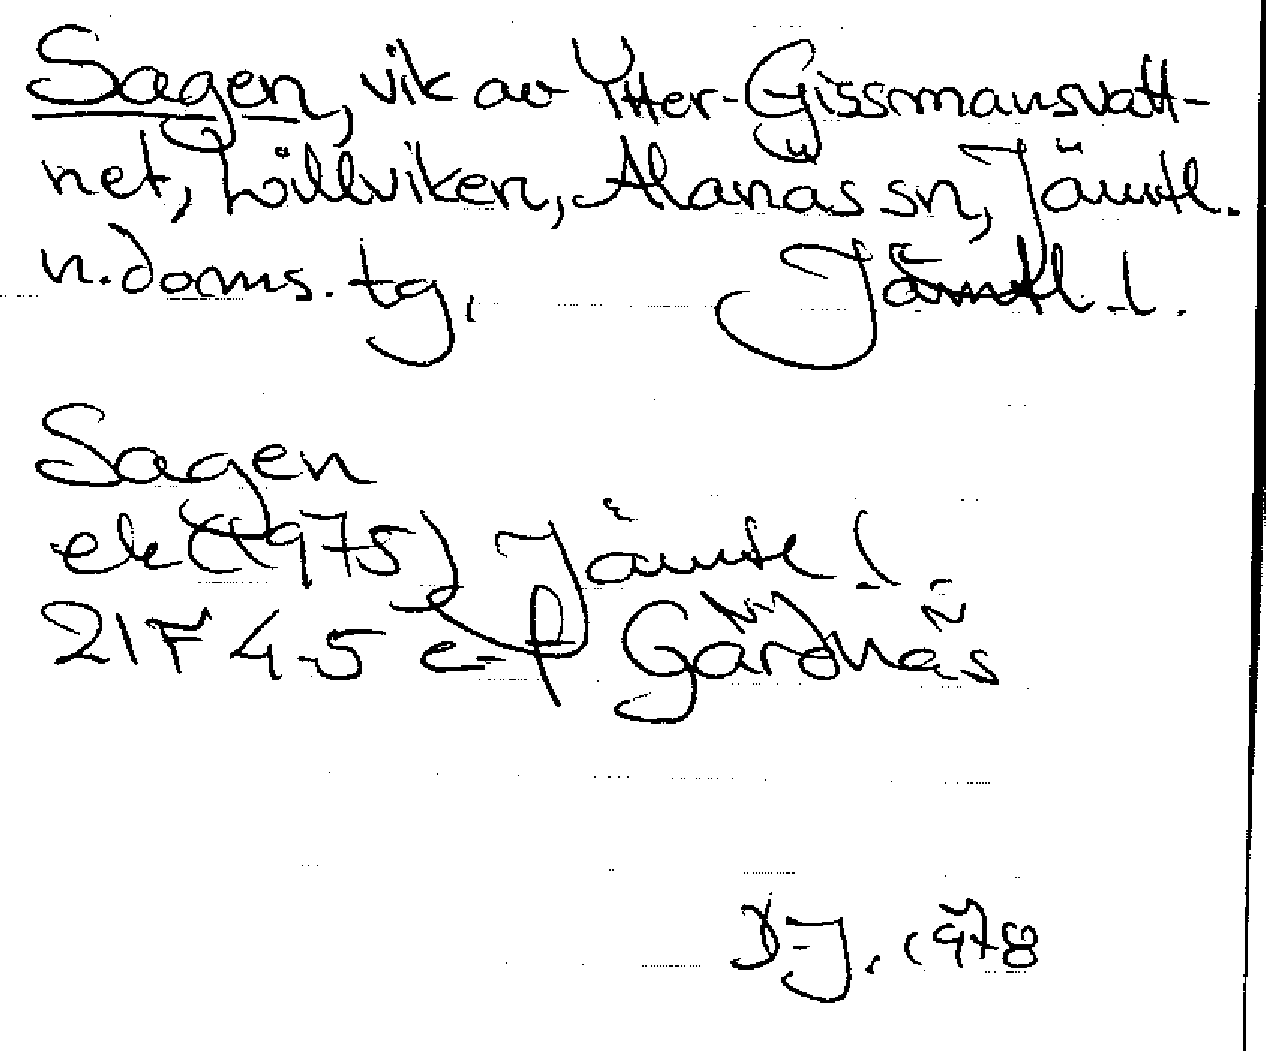 Sagen, vik av Ytter-Gissmansvatt-
net, Lillviken, Alanäs sn, Jämtl.
n. doms. tg, Jämtl. l.
Sagen
ek (1975) Jämtl l.
21F 4-5 e-f Gärdnäs
D-J. 1978